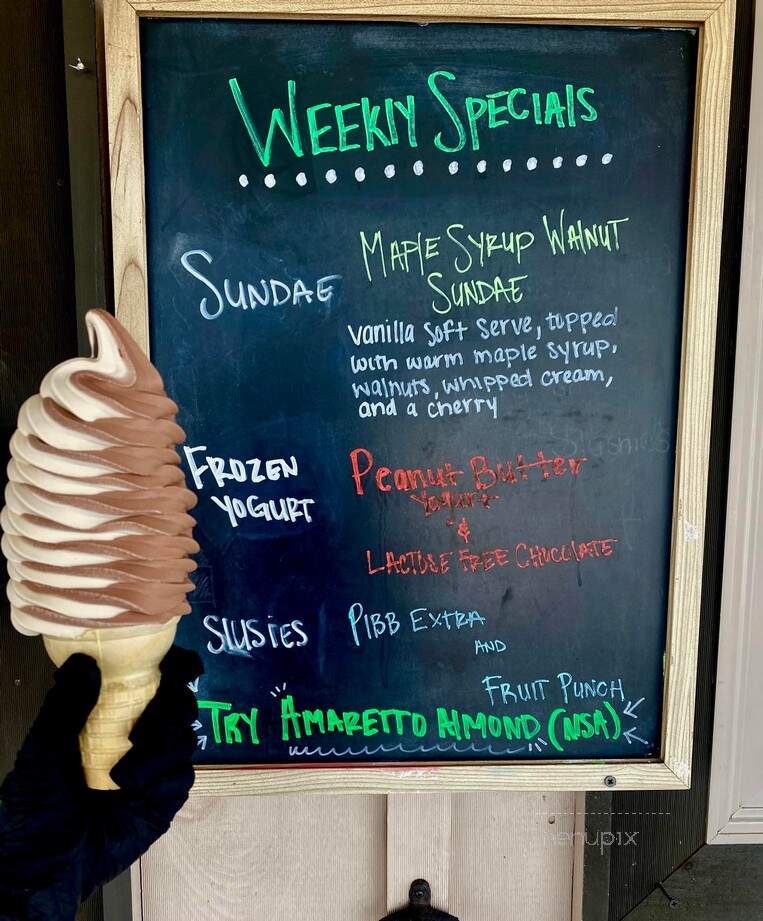 WEEKLY SPECIALS
SUNDAE
MAPLE SYRUP WALNUT
SUNDAE
vanilla soft serve, topped
with warm maple syrup,
walnuts, whipped cream,
and a cherry
FROZEN
YOGURT
Peanut Butter
Yogurt
&
LACTOSE FREE CHOCOLATE
SLUSIES
PIBB EXTRA
AND
FRUIT PUNCH
TRY AMARETTO ALMOND (NSA)
menupix